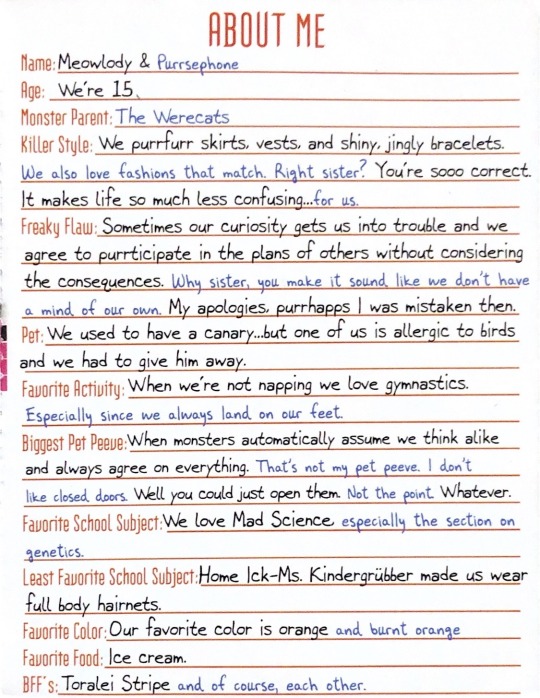 ABOUT ME
Name: Meowlody & Purrsephone
Age: We're 15.
Monster Parent: The Werecats
Killer Style: We purrfurr skirts, vests, and shiny, jingly bracelets.
We also love fashions that match. Right sister? You're sooo correct.
It makes life so much less confusing...for us.
Freaky Flaw: Sometimes our curiosity gets us into trouble and we
agree to purrticipate in the plans of others without considering
the consequences. Why sister, you make it sound like we don't have
a mind of our own. My apologies, purrhapps I was mistaken then.
Pet: We used to have a canary...but one of us is allergic to birds
and we had to give him away.
Favorite Activity: When we're not napping we love gymnastics.
Especially since we always land on our feet.
Biggest Pet Peeve: When monsters automatically assume we think alike
and always agree on everything. That's not my pet peeve. I don't
like closed doors. Well you could just open them. Not the point. Whatever.
Favorite School Subject: We love Mad Science, especially the section on
genetics.
Least Favorite School Subject: Home Ick-Ms. Kindergrübber made us wear
full body hairnets.
Favorite Color: Our favorite color is orange and burnt orange
Favorite Food: Ice cream.
BFF's: Toralei Stripe and of course, each other.